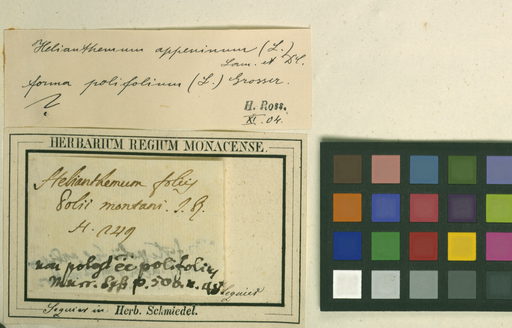 Helianthemum appeninum (L.)
Lam. et DC.
forma polifolium (L.) Grosser.
?
H. Ross.
XI. 04.
HERBARIUM REGIUM MONACENSE.
Helianthemum folijs
Polii montani. J. B.
H. 249
polifolius
Murr. p. 500. n.
Seguier
Seguier in Herb. Schmiedel.